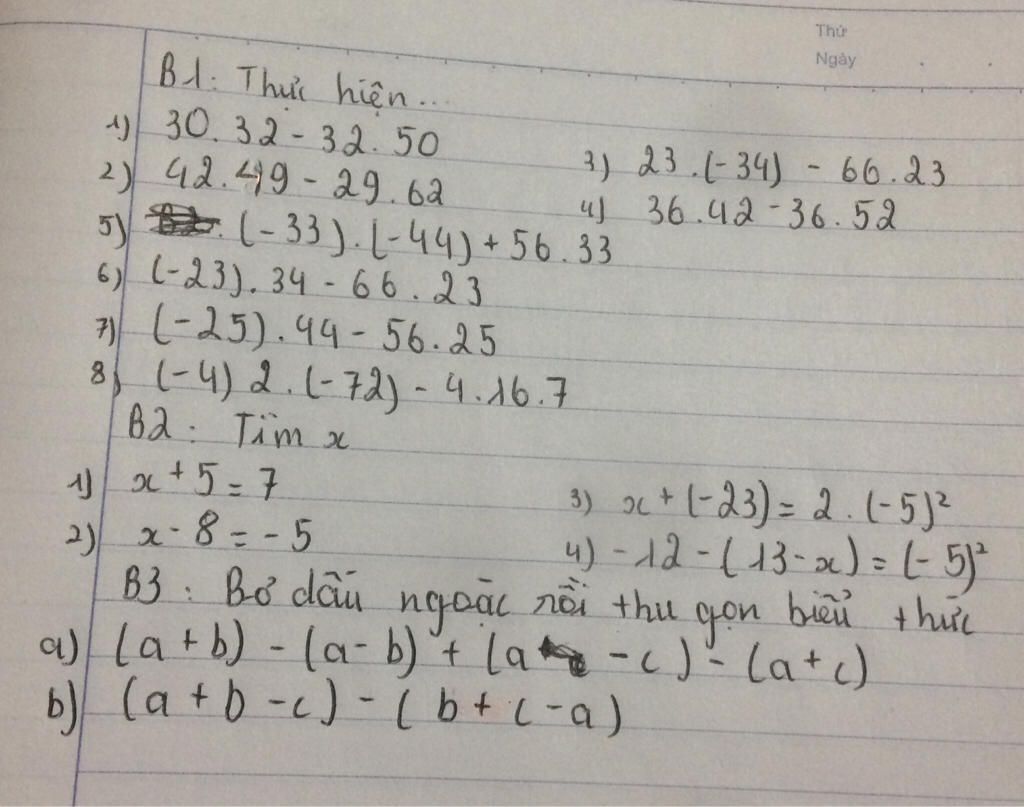 Thứ
Ngày
B1: Thực hiện...
1) 30.32 - 32.50
2) 42.49 - 29.62
3) 23.(-34) - 66.23
4) 36.42 - 36.52
5) (-33).(-44) + 56.33
6) (-23).34 - 66.23
7) (-25).44 - 56.25
8) (-4) 2.(-72) - 4.16.7
B2: Tìm x
1) x + 5 = 7
2) x - 8 = -5
3) x + (-23) = 2.(-5)²
4) -12 - (13 - x) = (-5)²
B3: Bỏ dấu ngoặc rồi thu gọn biểu thức
a) (a + b) - (a - b) + (a - c) - (a + c)
b) (a + b - c) - (b + c - a)